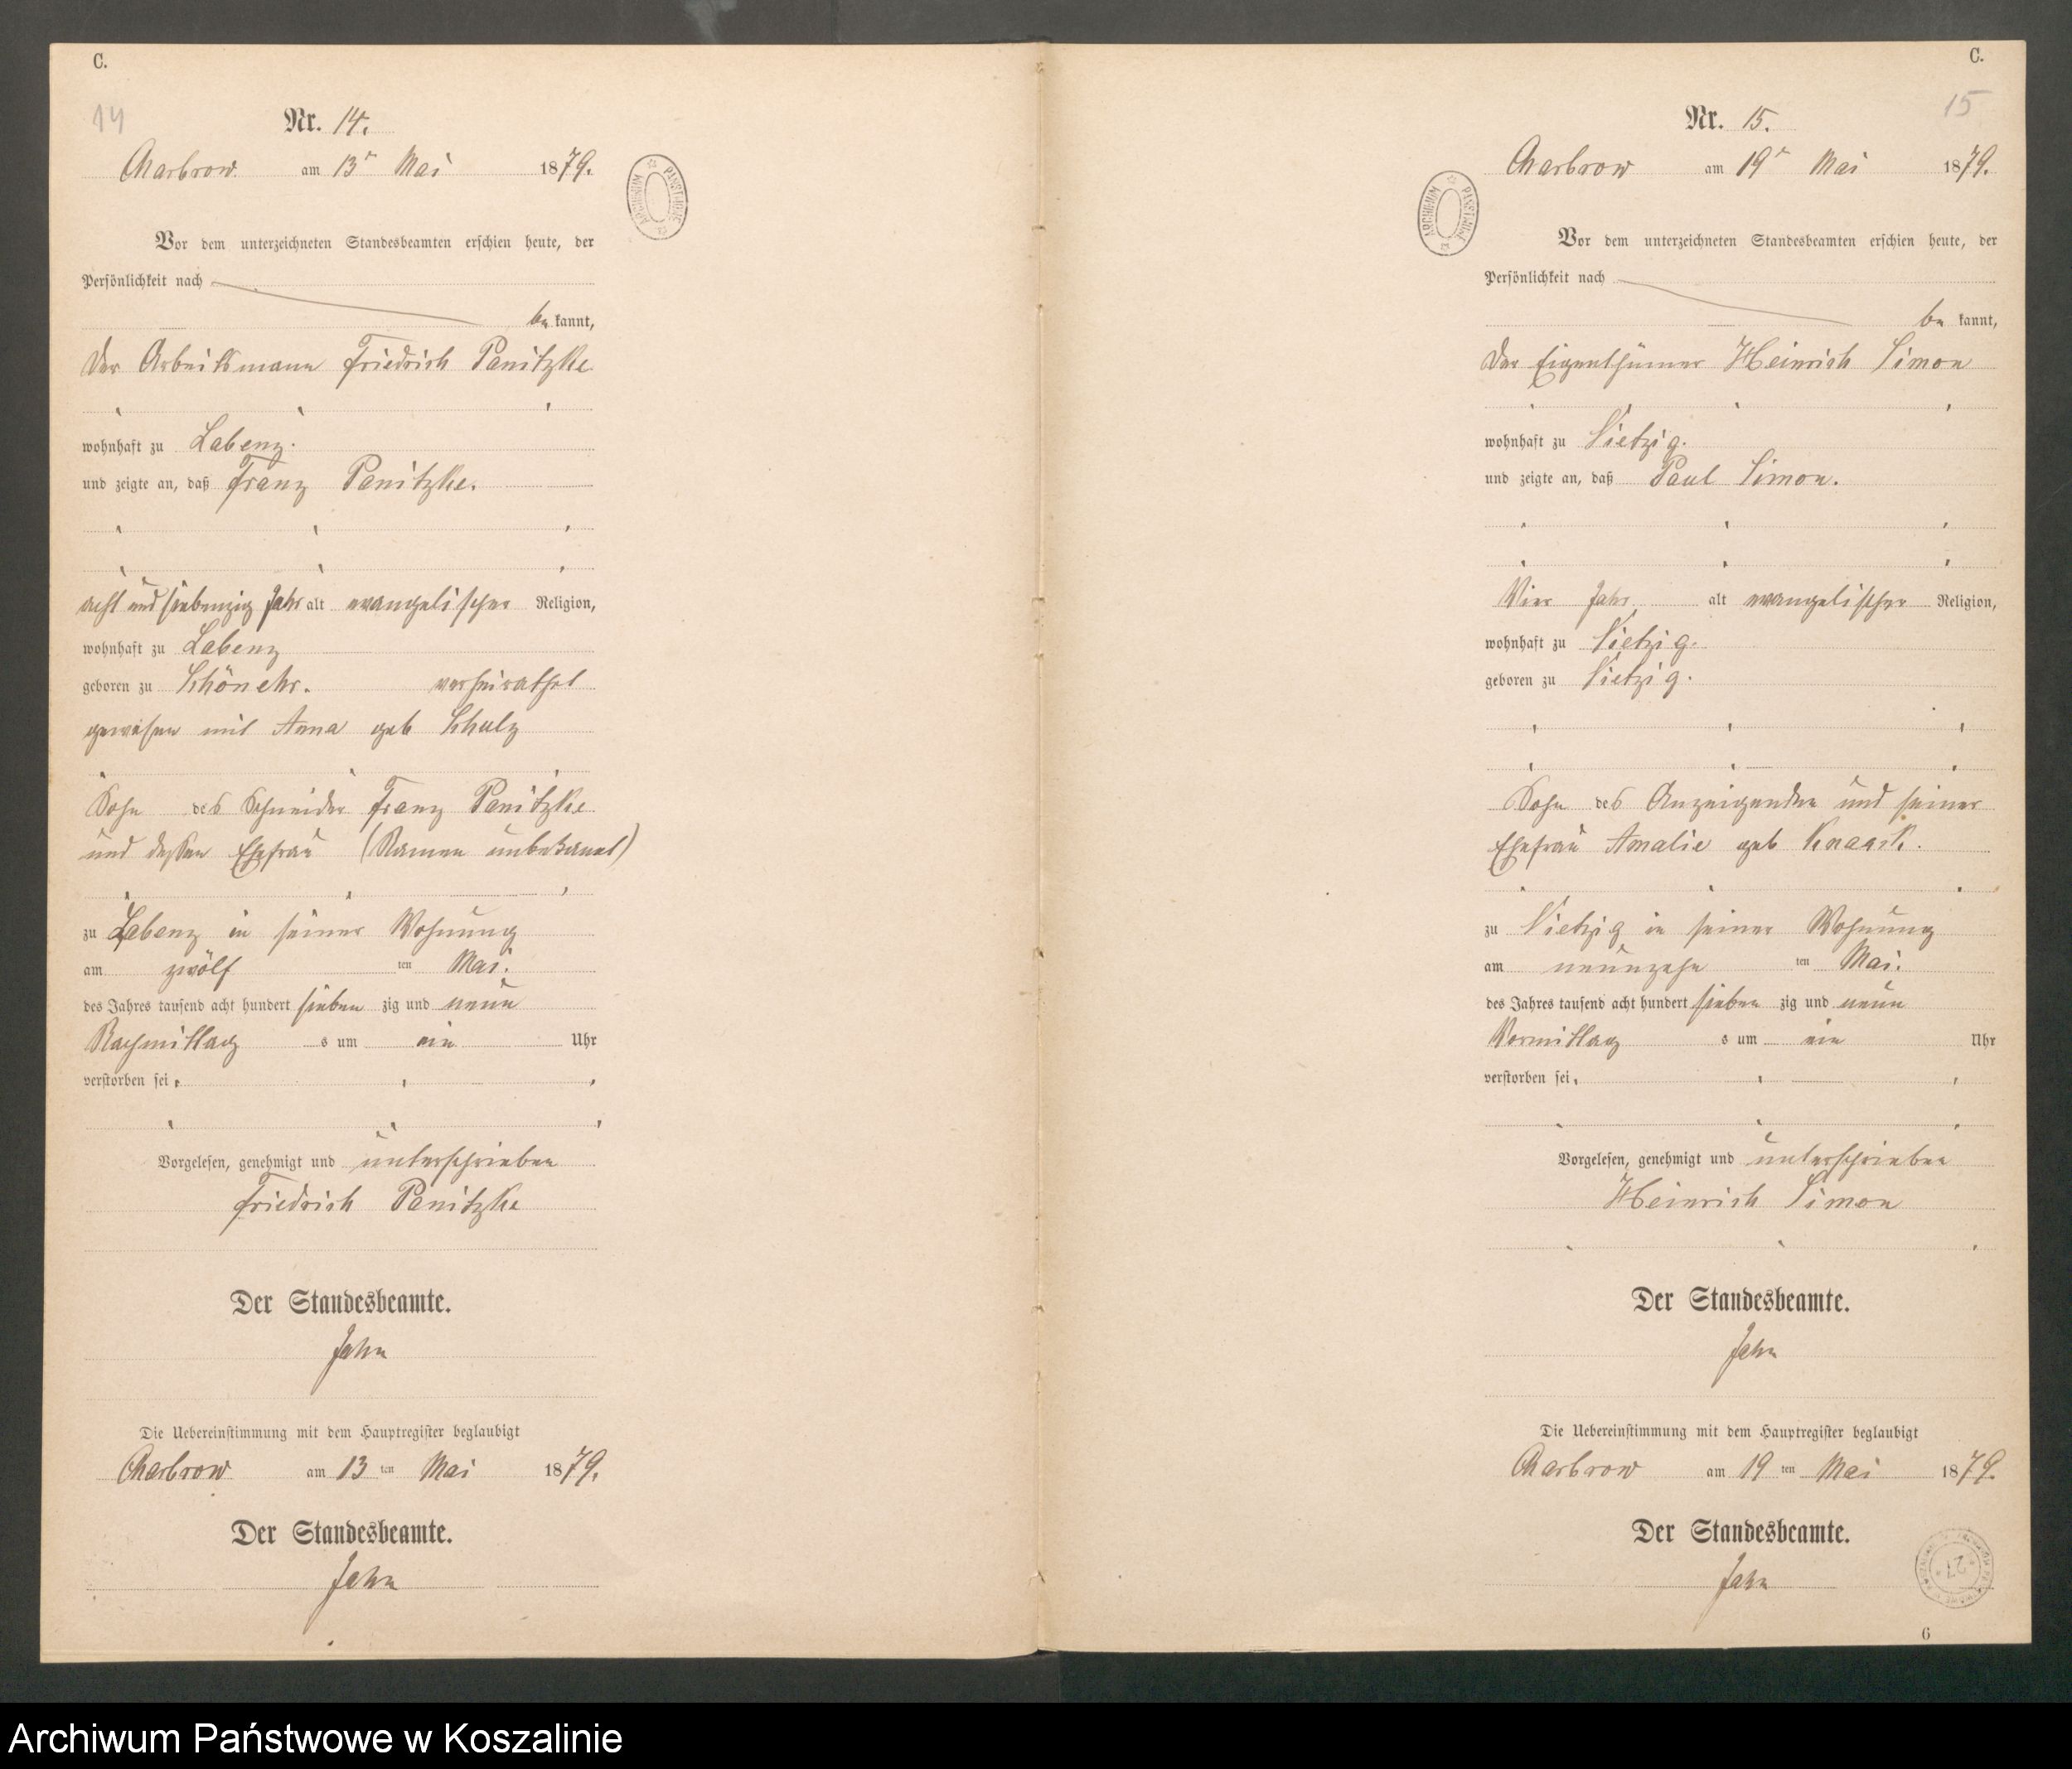 C.
14
Nr. 14.
Charbrow am 13t Mai 1879.
ARCHIWUM PAŃSTWOWE
Vor dem unterzeichneten Standesbeamten erschien heute, der
Persönlichkeit nach
be kannt,
der Arbeitsmann Friedrich Panitzke
wohnhaft zu Labenz.
und zeigte an, daß Franz Panitzke.
acht und siebenzig Jahr alt evangelischer Religion,
wohnhaft zu Labenz
geboren zu Schönehr. verheirathet
gewesen mit Anna geb Schulz
Sohn des Schneider Franz Panitzke
und dessen Ehefrau (Namen unbekannt)
zu Labenz in seiner Wohnung
am zwölf ten Mai.
des Jahres tausend acht hundert sieben zig und neun
Nachmittag s um ein Uhr
verstorben sei
Vorgelesen, genehmigt und unterschrieben
Friedrich Panitzke
Der Standesbeamte.
Jahn
Die Uebereinstimmung mit dem Hauptregister beglaubigt
Charbrow am 13 ten Mai 1879.
Der Standesbeamte.
Jahn
C.
15
Nr. 15.
Charbrow am 19t Mai 1879.
ARCHIWUM PAŃSTWOWE
Vor dem unterzeichneten Standesbeamten erschien heute, der
Persönlichkeit nach
be kannt,
der Eigenthümer Heinrich Simon
wohnhaft zu Vietzig.
und zeigte an, daß Paul Simon.
Vier Jahr alt evangelischer Religion,
wohnhaft zu Vietzig.
geboren zu Vietzig.
Sohn des Anzeigenden und seiner
Ehefrau Amalie geb Knaack.
zu Vietzig in seiner Wohnung
am neunzehn ten Mai.
des Jahres tausend acht hundert sieben zig und neun
Vormittag s um ein Uhr
verstorben sei
Vorgelesen, genehmigt und unterschrieben
Heinrich Simon
Der Standesbeamte.
Jahn
Die Uebereinstimmung mit dem Hauptregister beglaubigt
Charbrow am 19 ten Mai 1879.
Der Standesbeamte.
Jahn
27
6
Archiwum Państwowe w Koszalinie